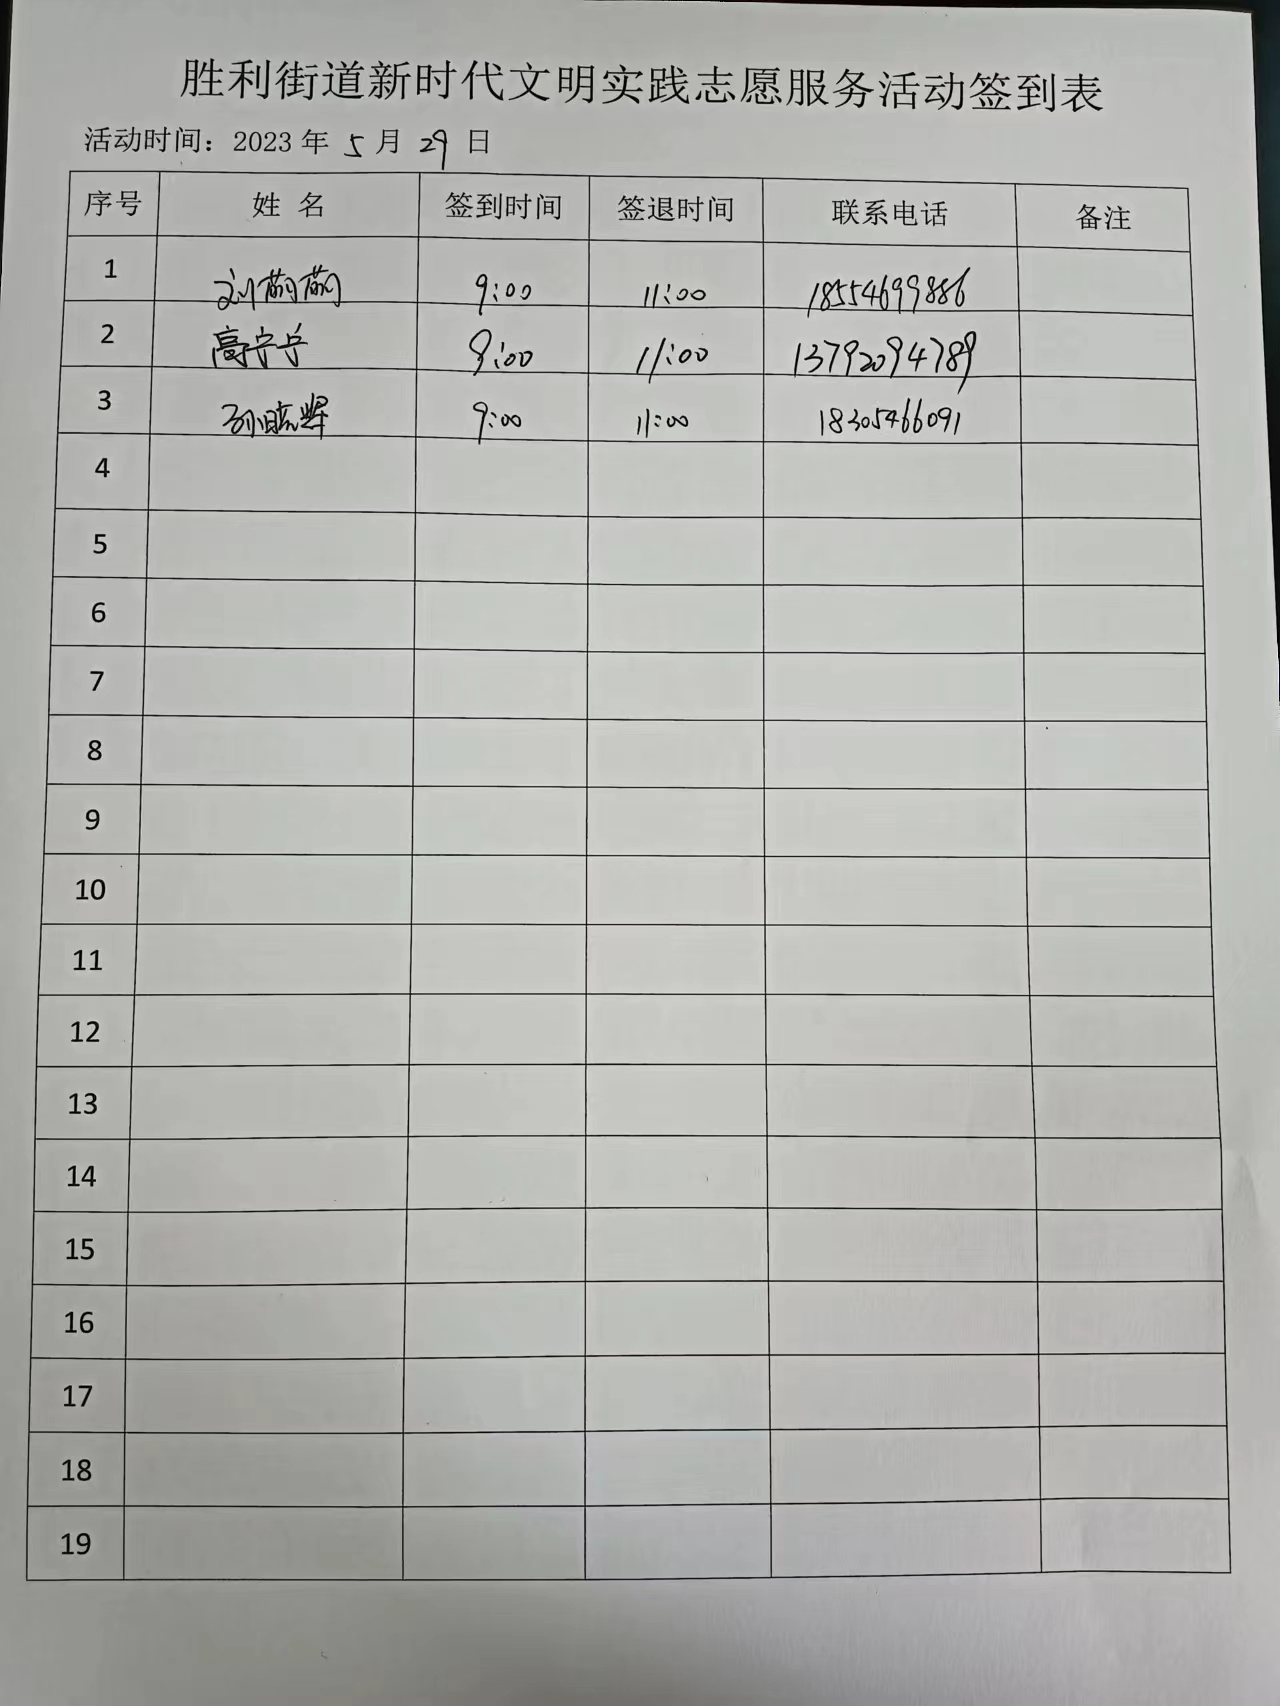 胜利街道新时代文明实践志愿服务活动签到表
活动时间：2023 年 5 月 29 日
序号 姓 名 签到时间 签退时间 联系电话 备注
1 刘萌萌 9:00 11:00 18554699886
2 高宁宁 9:00 11:00 13792094789
3 孙晓辉 9:00 11:00 18305466091
4
5
6
7
8
9
10
11
12
13
14
15
16
17
18
19